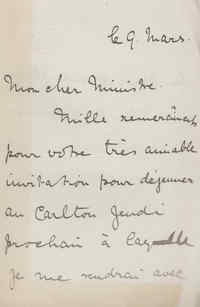 Ce 9 Mars.
Mon cher Ministre.
Mille remerciements
pour votre très aimable
invitation pour déjeuner
au Carlton Jeudi
prochain à laquelle
je me rendrai avec